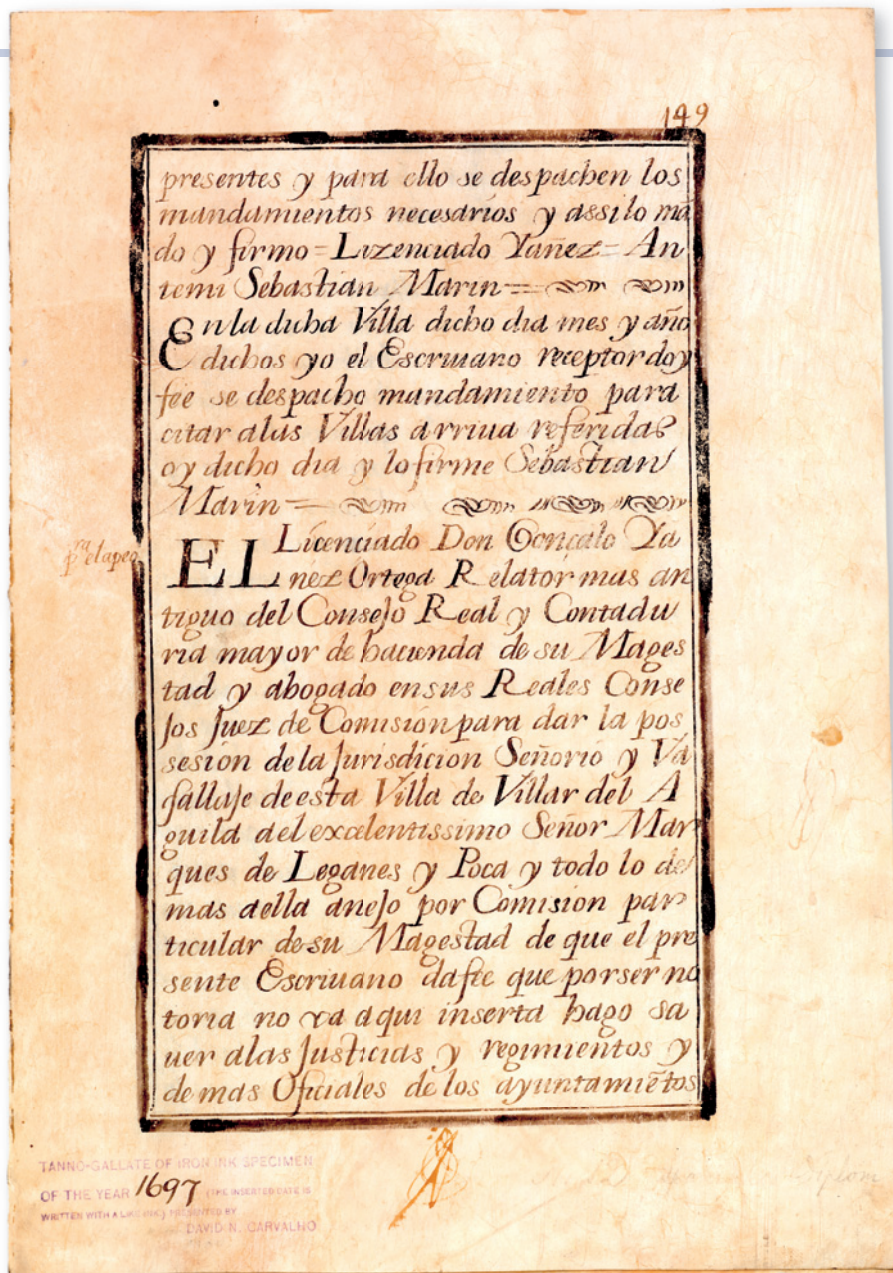 149
presentes y para ello se despachen los
mandamientos necesarios y assi lo mā
do y firmo = Lizenciado Yañez = An
temi Sebastian Marin =
En la dicha Villa dicho dia mes y año
dichos yo el Escriuano receptor doy
fee se despacho mandamiento para
citar alas Villas arriua referidas
oy dicho dia y lo firme Sebastian
Marin =
pra elapeo
EL Licenciado Don Gonçalo Ya
ñez Ortega Relator mas an
tiguo del Consejo Real y Contadu
ria mayor de hacienda de su Mages
tad y abogado en sus Reales Conse
jos Juez de Comision para dar la pos
sesion de la Jurisdicion Señorio y Va
sallaje de esta Villa de Villar del A
guila al excelentissimo Señor Mar
ques de Leganes y Poca y todo lo de
mas aella anejo por Comision par
ticular de su Magestad de que el pre
sente Escriuano da fee que por ser no
toria no va aqui inserta hago sa
uer alas Justicias y regimientos y
demas Oficiales de los ayuntamiētos
TANNO-GALLATE OF IRON INK SPECIMEN
OF THE YEAR 1697 (THE INSERTED DATE IS
WRITTEN WITH A LIKE INK) PRESENTED BY
DAVID N. CARVALHO